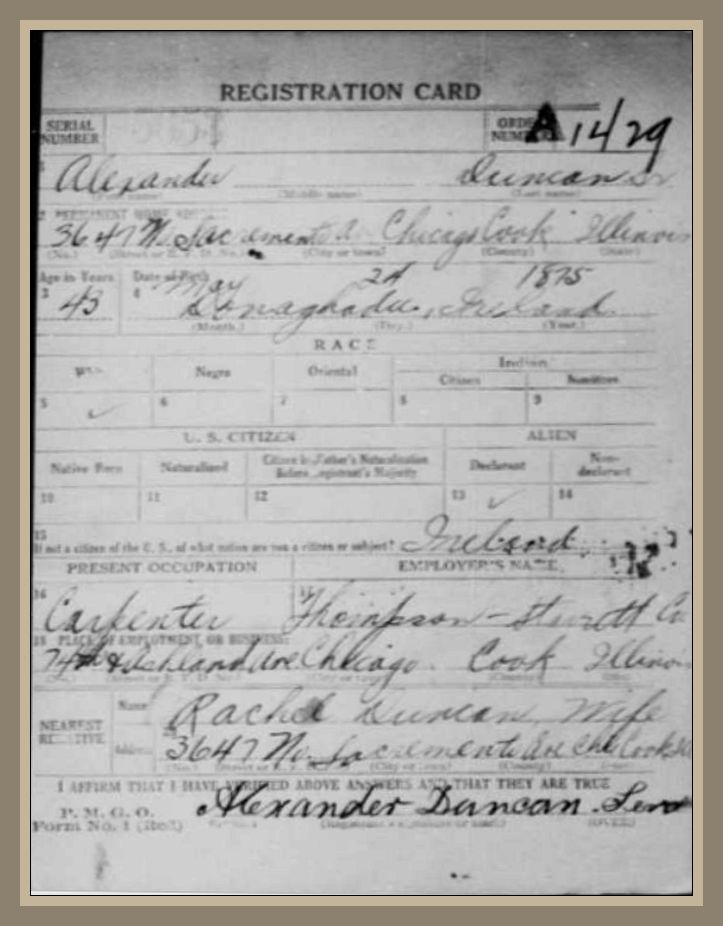 REGISTRATION CARD
SERIAL NUMBER ORDER NUMBER A 1429
1 Alexander Duncan Sr
(First name) (Middle name) (Last name)
2 PERMANENT HOME ADDRESS
3647 No Sacremento Av Chicago Cook Illinois
(No.) (Street or R. F. D. No.) (City or town) (County) (State)
Age in Years Date of Birth May 24 1875
3 43 4 Donaghadee, Ireland
(Month.) (Day.) (Year.)
RACE
White Negro Oriental Indian
Citizen Noncitizen
5 ✓ 6 7 8 9
U. S. CITIZEN ALIEN
Native Born Naturalized Citizen by Father's Naturalization Before Registrant's Majority Declarant Non-declarant
10 11 12 13 ✓ 14
15
If not a citizen of the U. S., of what nation are you a citizen or subject? Ireland
PRESENT OCCUPATION EMPLOYER'S NAME
16 Carpenter 17 Thompson - Co
18 PLACE OF EMPLOYMENT OR BUSINESS:
74th & Ashland Ave Chicago Cook Illinois
(No.) (Street or R. F. D. No.) (City or town) (County) (State)
NEAREST RELATIVE Name 19 Rachel Duncan, Wife
Address 20 3647 No Sacremento Ave Chi Cook Ill
(No.) (Street or R. F. D. No.) (City or town) (County) (State)
I AFFIRM THAT I HAVE VERIFIED ABOVE ANSWERS AND THAT THEY ARE TRUE
P. M. G. O.
Form No. 1 (Red) Alexander Duncan Senr
(Registrant's signature or mark) (OVER)